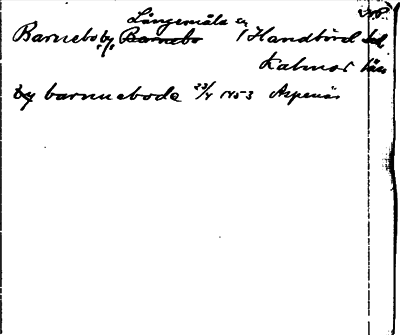 Långemåla sn
Barnebo by Barnebo i Handbörd hd
Kalmar län
by barnnebode 23/4 1453 Aspenäs